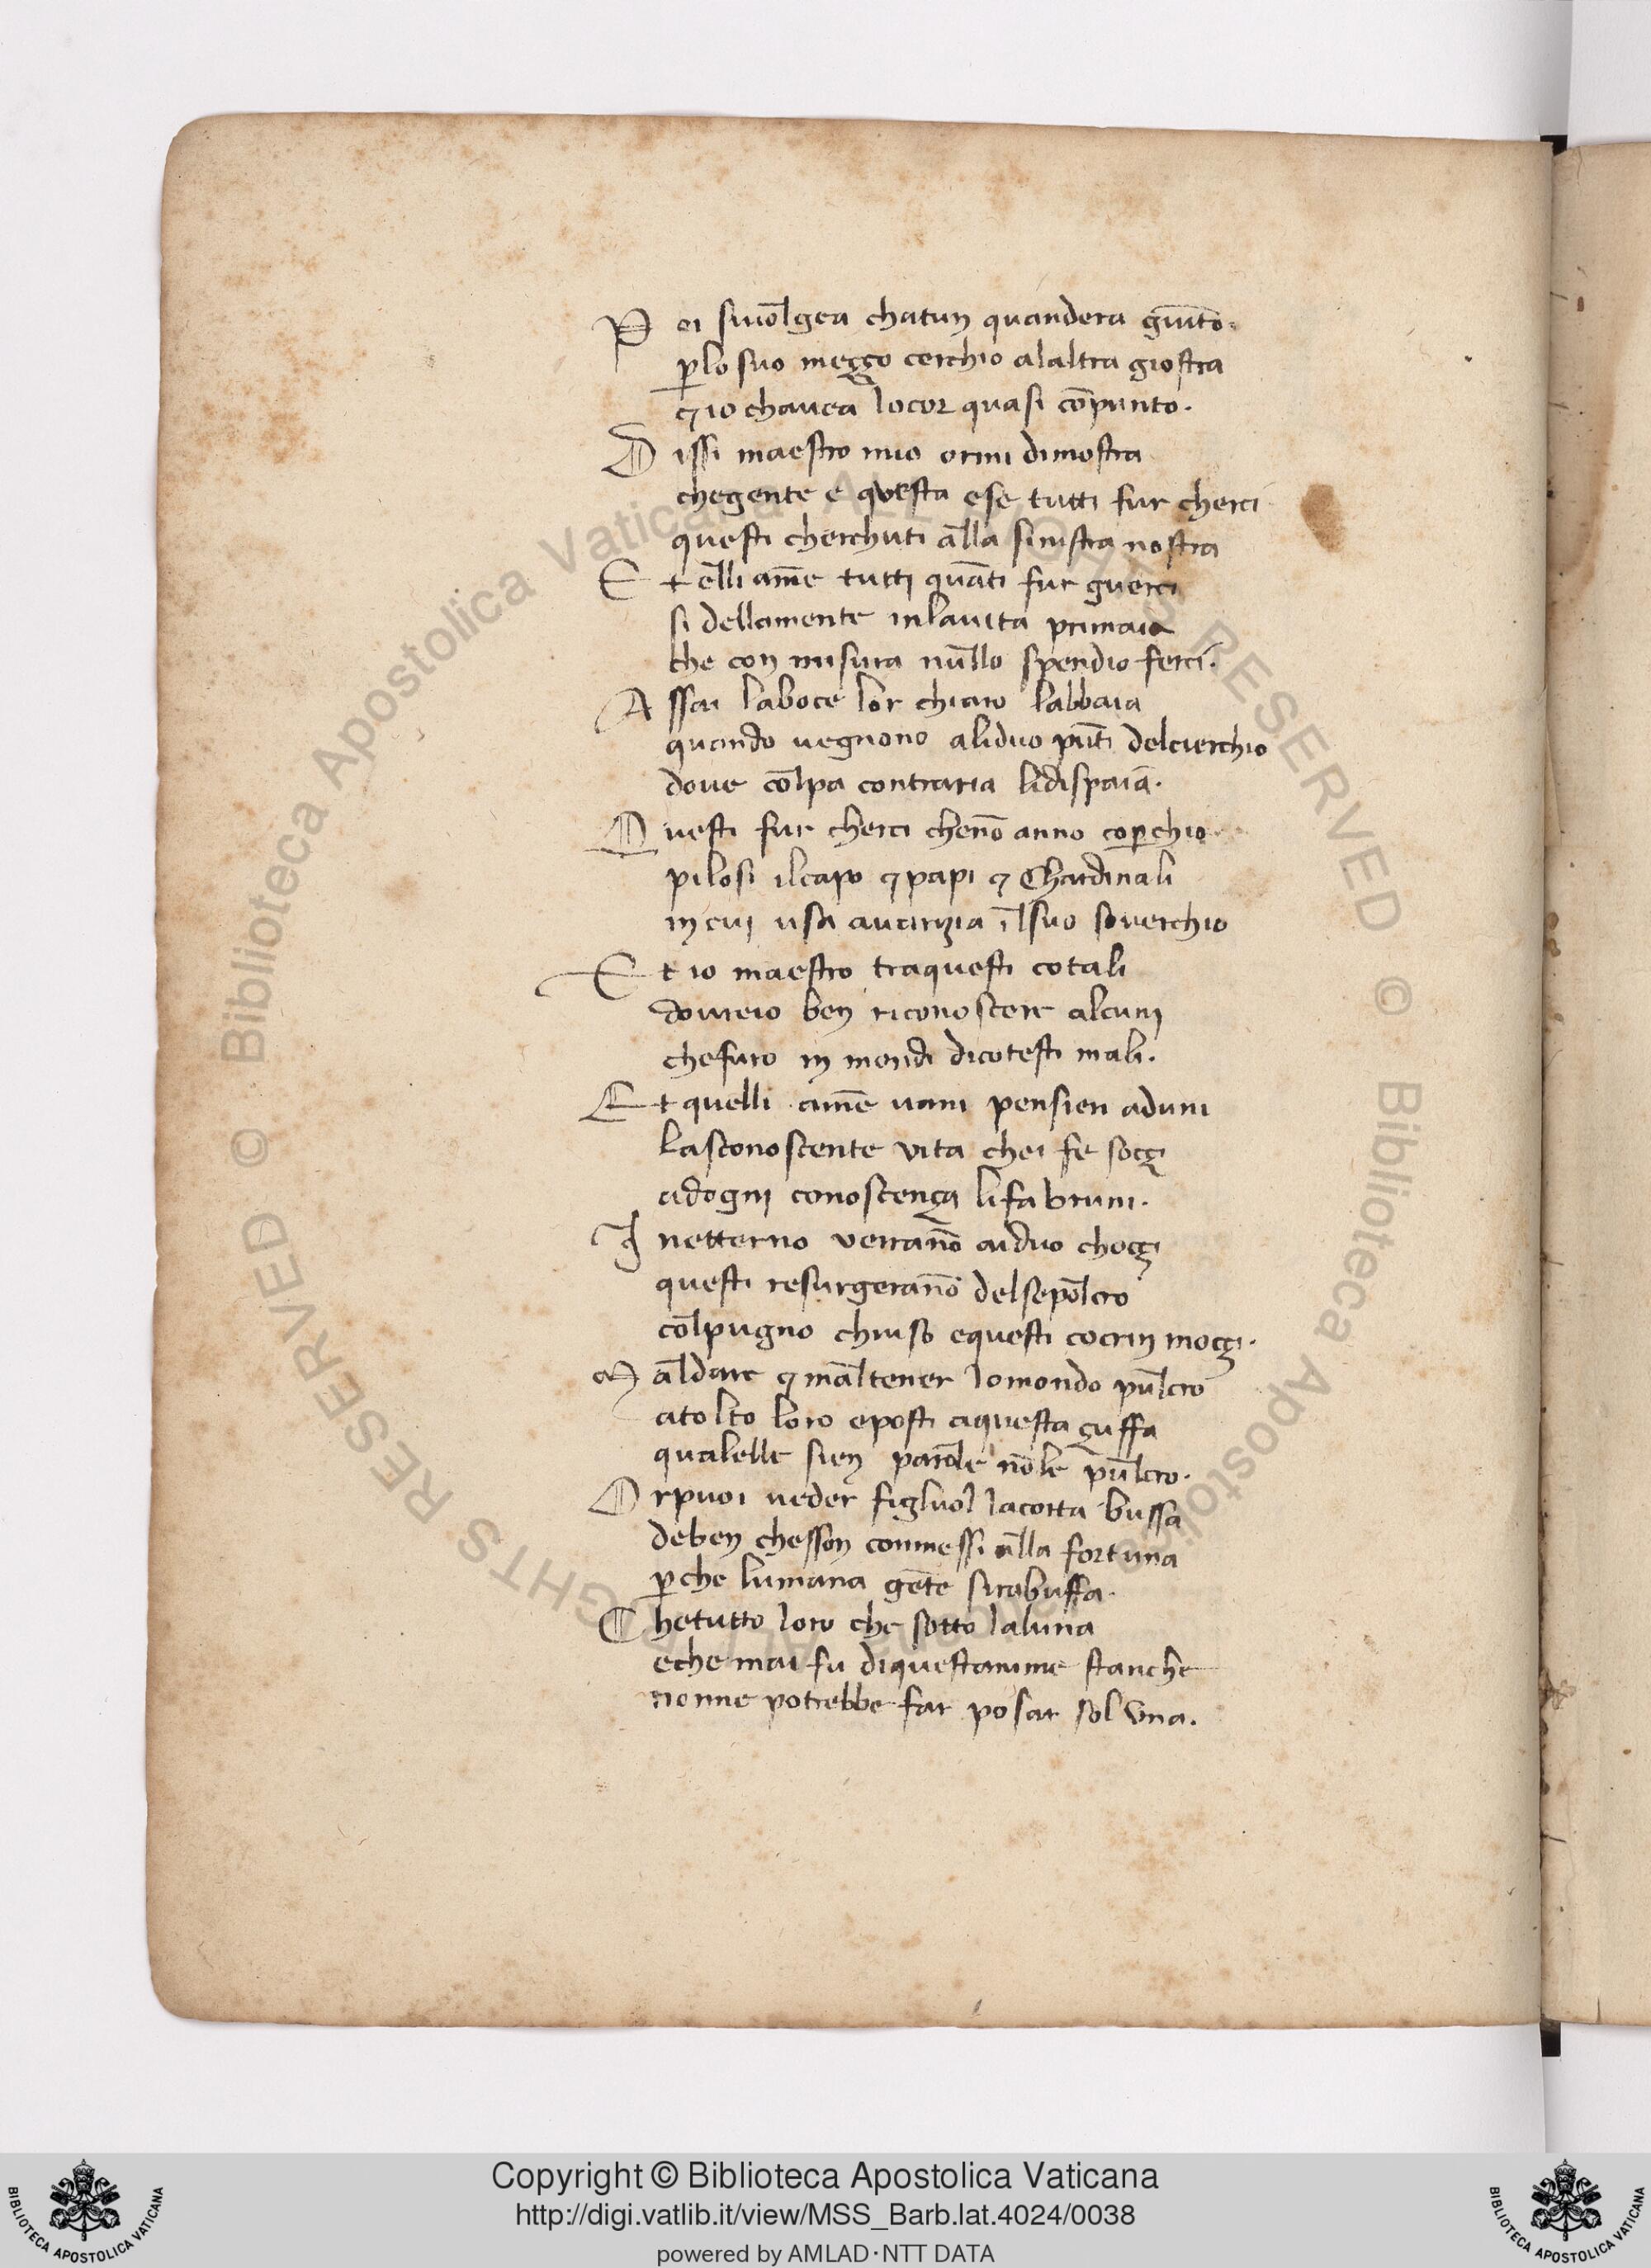 Poi siuolgea chatun quandera giūto.
ꝑlo suo meççо cerchio alaltra giostra
⁊ io chauea locor quasi cōpunto.
Dissi maestro mio ormi dimostra
chegente e questa ese tutti fur cherci
questi cherchuti alla sinistra nostra
Et elli ame tutti quāti fur guerci
si dellamente inlauita primaia
che con misura nullo spendio ferci.
Assai laboce lor chiaro labbaia
quando uegnono aliduo pūti delcierchio
doue colpa contraria lidispaia.
Questi fur cherci chenō anno coꝑchio
pilosi ilcapo ⁊ papi ⁊ Chardinali
in cui usa auarizia ilsuo souerchio
Et io maestro traquesti cotali
dovreio ben riconoscere alcuni
chefuro in mondi dicotesti mali.
Et quelli ame uani pensieri aduni
lasconoscente vita chei fe soççi
adogni conoscença lifa bruni.
Inetterno verranō aiduo choççi
questi resurgeranō delsepolcro
colpugno chiuso equesti cocrin moççi.
Mal dare ⁊ mal tener lomondo pulcro
atolto loro eposti aquesta çuffa
qualelle sien parole nōle pulcro.
Orpuoi ueder figluol lacorta bussa
deben chesson commessi alla fortuna
ꝑche lumana gēte sirabuffa.
Chetutto loro che sotto laluna
eche mai fu diquestanime stanche
nonne potrebbe far posar sol vna.
Copyright © Biblioteca Apostolica Vaticana
http://digi.vatlib.it/view/MSS_Barb.lat.4024/0038
powered by AMLAD·NTT DATA
BIBLIOTECA APOSTOLICA VATICANA
BIBLIOTECA APOSTOLICA VATICANA
© Biblioteca Apostolica Vaticana ALL RIGHTS RESERVED
© Biblioteca Apostolica Vaticana ALL RIGHTS RESERVED